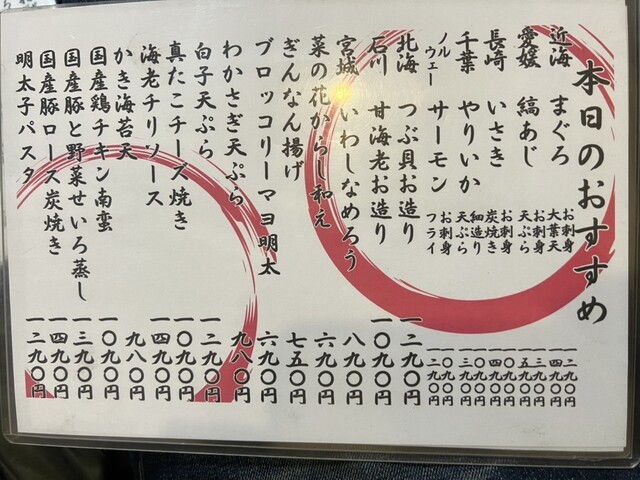 本日のおすすめ
近海 まぐろ お刺身 一二九〇円
大葉天 一四九〇円
愛媛 縞あじ お刺身 一三九〇円
天ぷら 一五九〇円
長崎 いさき お刺身
炭焼き 一四九〇円
千葉 やりいか 細造り 一〇九〇円
天ぷら 一三九〇円
ノルウェー サーモン お刺身 一〇九〇円
フライ 一二九〇円
北海 つぶ貝お造り 一二九〇円
石川 甘海老お造り 一〇九〇円
宮城 いわしなめろう 八九〇円
菜の花からし和え 六九〇円
ぎんなん揚げ 七五〇円
ブロッコリーマヨ明太 六九〇円
わかさぎ天ぷら 九八〇円
白子天ぷら 一二九〇円
真たこチーズ焼き 一〇九〇円
海老チリソース 一四九〇円
かき海苔天 九八〇円
国産鶏チキン南蛮 一〇九〇円
国産豚と野菜せいろ蒸し 一三九〇円
国産豚ロース炭焼き 一四九〇円
明太子パスタ 一二九〇円